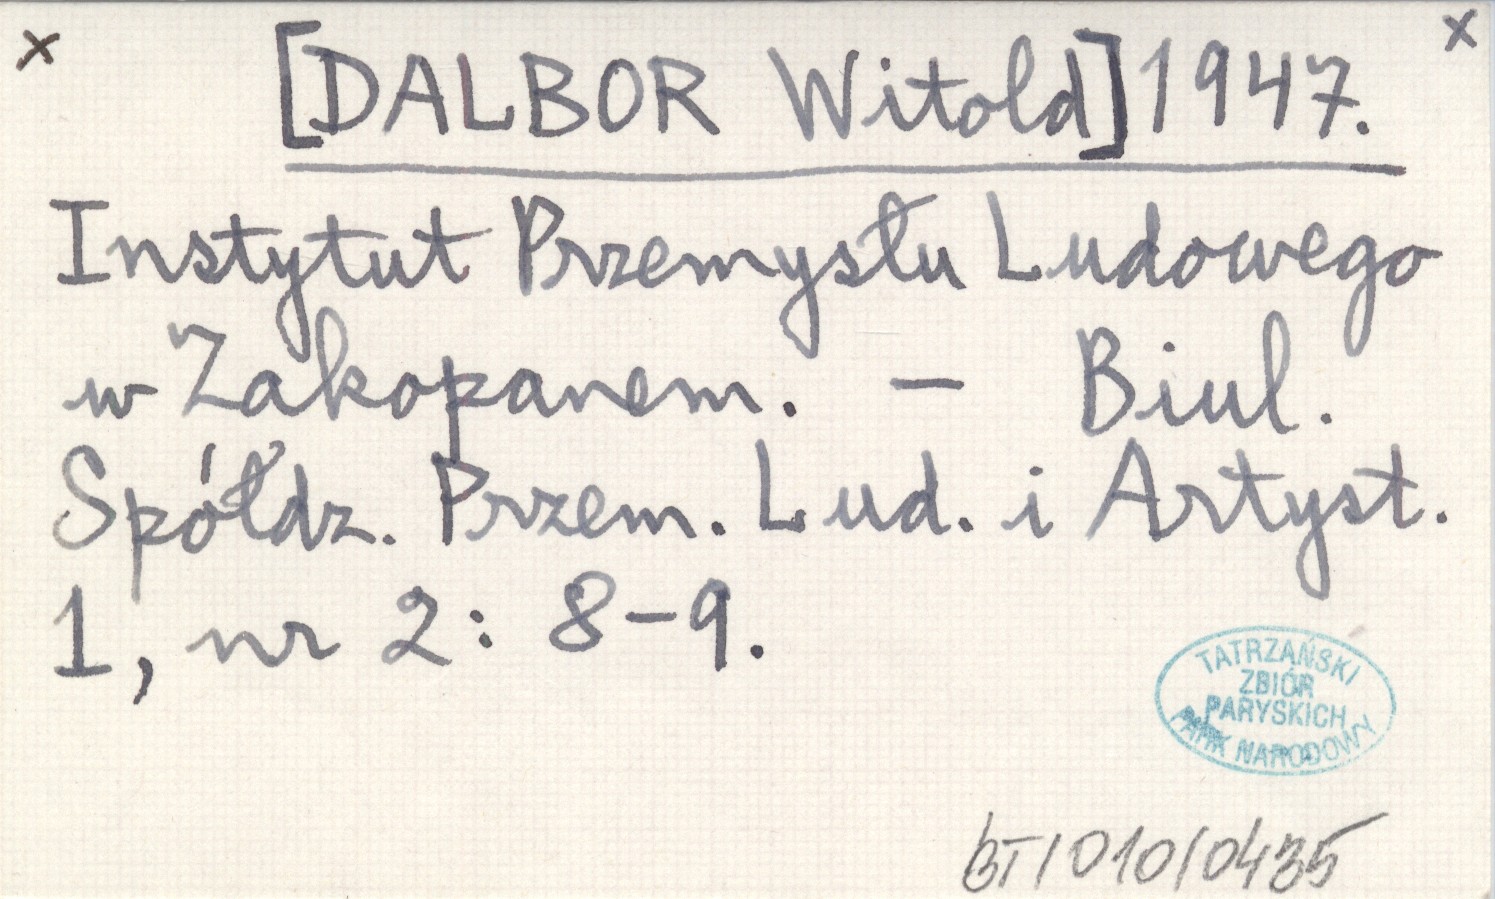 x [DALBOR Witold] 1947. x
Instytut Przemysłu Ludowego
w Zakopanem. – Biul.
Spółdz. Przem. Lud. i Artyst.
1, nr 2: 8-9.
TATRZAŃSKI
ZBIÓR
PARYSKICH
PARK NARODOWY
BT/010/0435